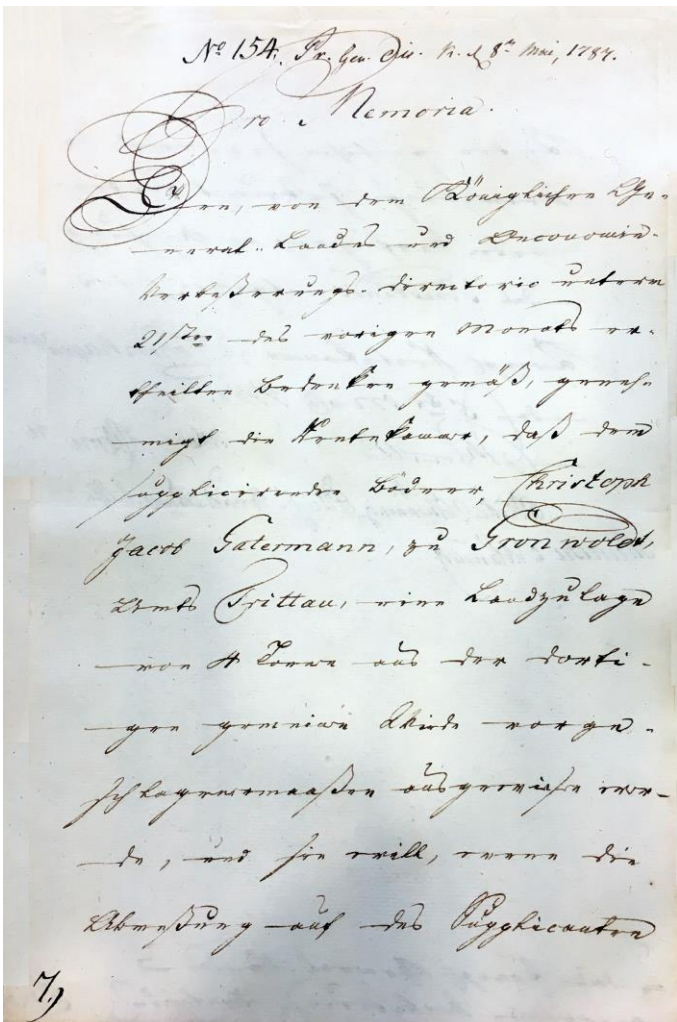 No 154. Pr. Gen. Dir. K. d 8ten Mai, 1787.
Pro Memoria.
Dem, von dem Königlichen Ge-
neral-Landes und Oeconomie-
Verbeßerungs-Directorio unterm
21sten des vorigen Monats er-
theilten Bedenken gemäß, geneh-
migt die Rentekammer, daß dem
supplicirenden Bödner, Christoph
Jacob Gatermann, zu Grönwoldt,
Amts Trittau, eine Landzulage
von 4 Tonnen aus der dorti-
gen gemeinen Weide vorge-
schlagenermaaßen ausgewiesen wer-
de, und sie will, wenn die
Abmeßung auf des Supplicanten
7.)